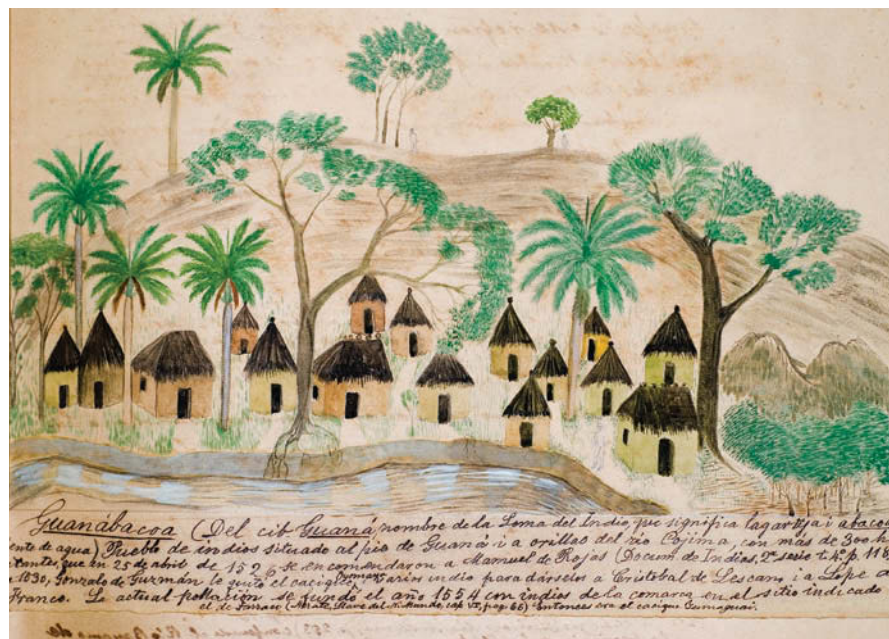 Guanábacoa (Del cib Guaná, nombre de la Loma del Indio, que significa lagartija i abacoa
ente de agua) Pueblo de indios situado al pié de Guaná i a orillas del río Cojima, con más de 300 h
itantes, que en 25 de abril de 1526 se encomendaron a Manuel de Rojas (Docum. de Indias, 2ª serie t. 4º p. 118
1030, Gonzalo de Guzmán le quitó el cacique indio para dárselos a Cristobal de Lescano i a Lope d
Franco. La actual población se fundó el año 1554 con indios de la comarca en el sitio indicado
el de (Arrate, Llave del N. Mundo, cap VI, pag. 66) Entonces era el cacique